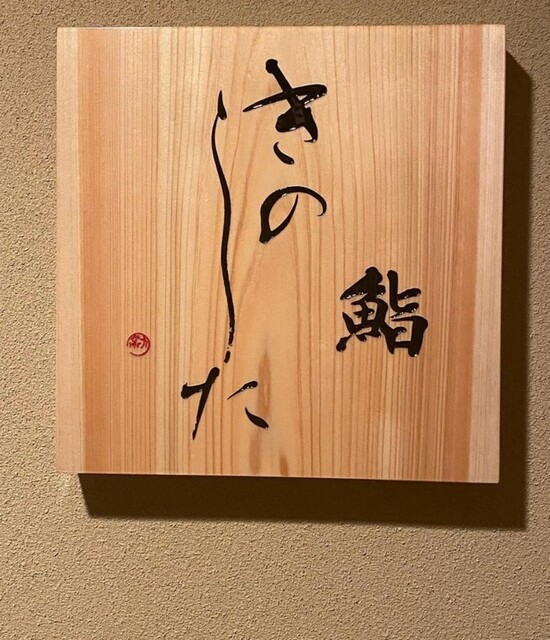 鮨
きのした